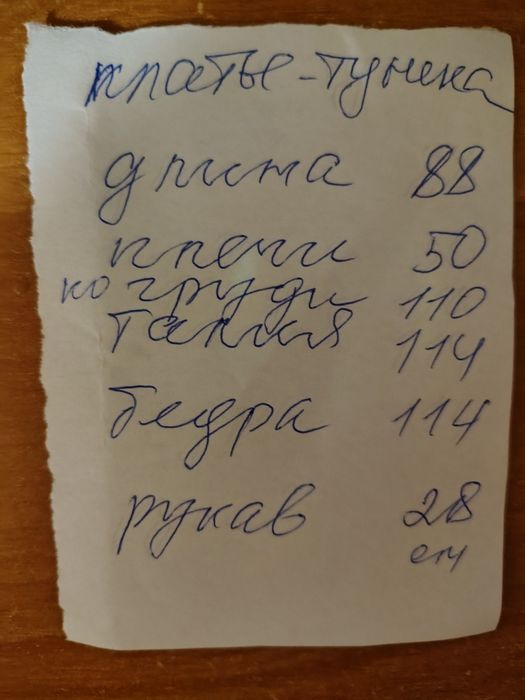 платье-туника
длина 88
плечи 50
по груди 110
талия 114
бедра 114
рукав 28
см